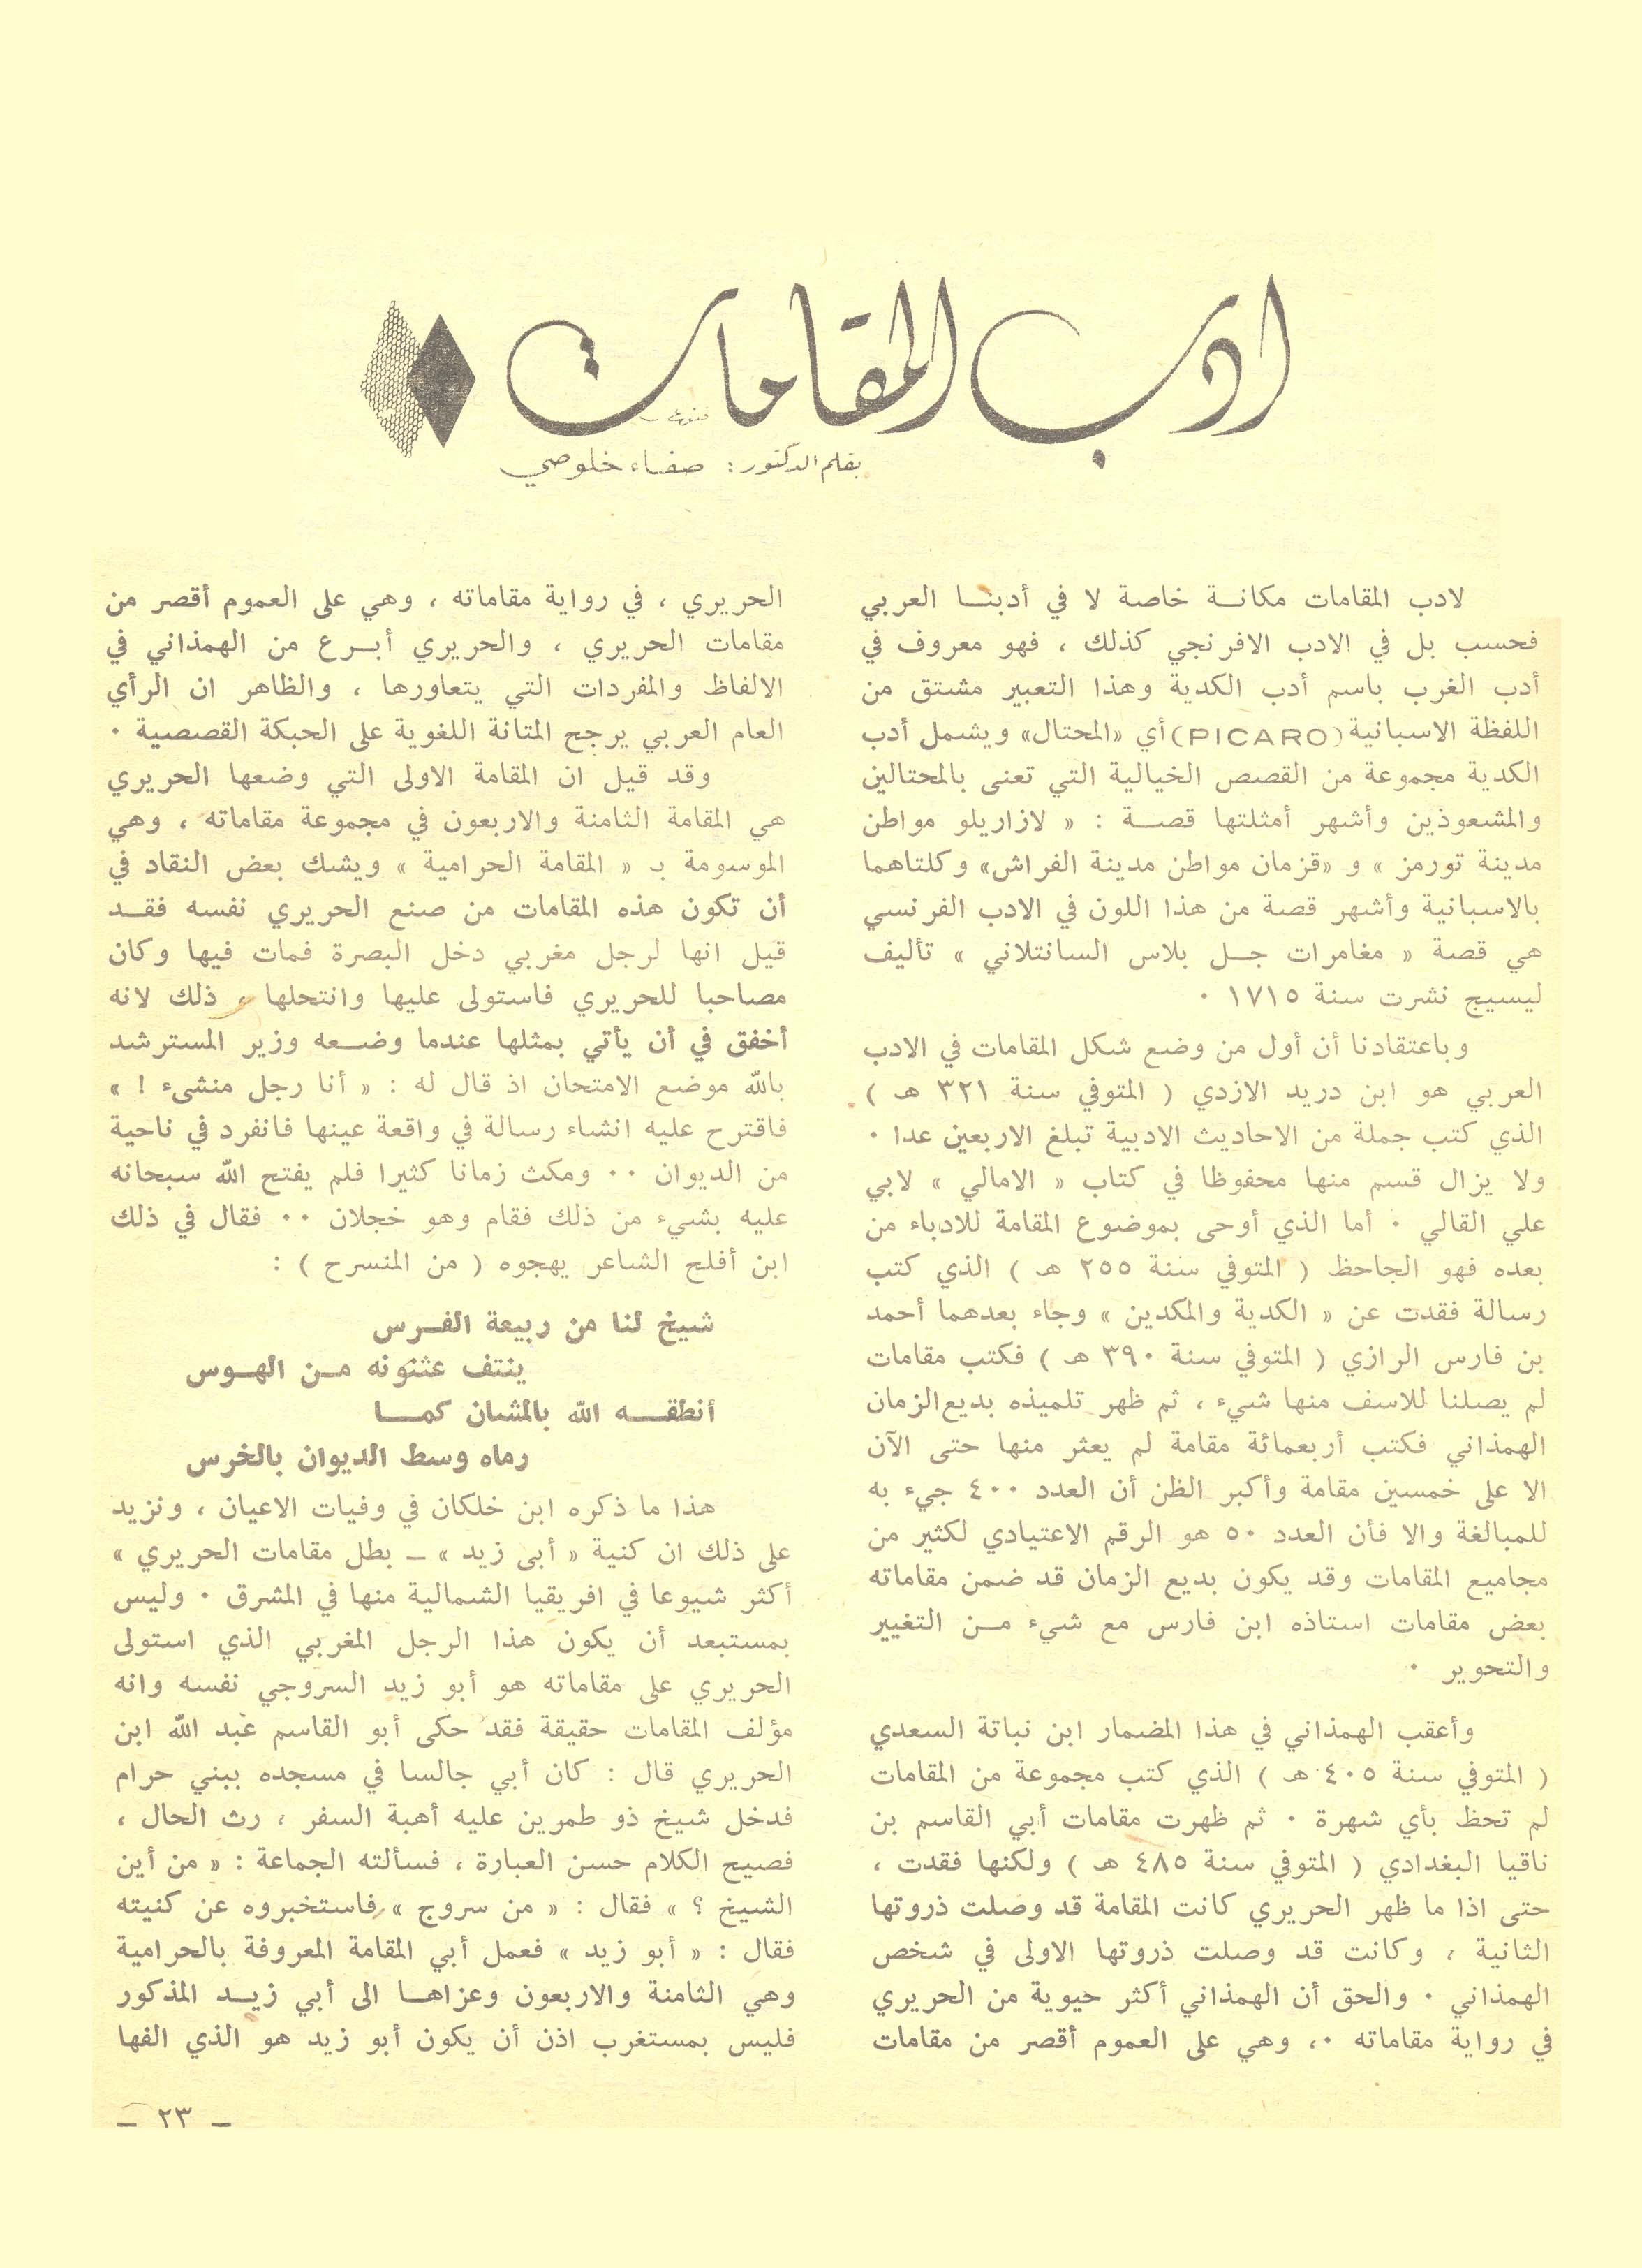 ادب المقامات
بقلم الدكتور : صفاء خلوصي
لادب المقامات مكانة خاصة لا في أدبنا العربي
فحسب بل في الادب الافرنجي كذلك ، فهو معروف في
أدب الغرب باسم أدب الكدية وهذا التعبير مشتق من
اللفظة الاسبانية (PICARO) أي «المحتال» ويشمل أدب
الكدية مجموعة من القصص الخيالية التي تعنى بالمحتالين
والمشعوذين وأشهر أمثلتها قصة : « لازاريلو مواطن
مدينة تورمز » و «قزمان مواطن مدينة الفراش» وكلتاهما
بالاسبانية وأشهر قصة من هذا اللون في الادب الفرنسي
هي قصة « مغامرات جل بلاس السانتلاني » تأليف
ليسيج نشرت سنة ١٧١٥ ٠
وباعتقادنا أن أول من وضع شكل المقامات في الادب
العربي هو ابن دريد الازدي ( المتوفي سنة ٣٢١ هـ )
الذي كتب جملة من الاحاديث الادبية تبلغ الاربعين عدا ٠
ولا يزال قسم منها محفوظا في كتاب « الامالي » لابي
علي القالي ٠ أما الذي أوحى بموضوع المقامة للادباء من
بعده فهو الجاحظ ( المتوفي سنة ٢٥٥ هـ ) الذي كتب
رسالة فقدت عن « الكدية والمكدين » وجاء بعدهما أحمد
بن فارس الرازي ( المتوفي سنة ٣٩٠ هـ ) فكتب مقامات
لم يصلنا للاسف منها شيء ، ثم ظهر تلميذه بديع الزمان
الهمذاني فكتب أربعمائة مقامة لم يعثر منها حتى الآن
الا على خمسين مقامة وأكبر الظن أن العدد ٤٠٠ جيء به
للمبالغة والا فأن العدد ٥٠ هو الرقم الاعتيادي لكثير من
مجاميع المقامات وقد يكون بديع الزمان قد ضمن مقاماته
بعض مقامات استاذه ابن فارس مع شيء من التغيير
والتحوير ٠
وأعقب الهمذاني في هذا المضمار ابن نباتة السعدي
( المتوفي سنة ٤٠٥ هـ ) الذي كتب مجموعة من المقامات
لم تحظ بأي شهرة ٠ ثم ظهرت مقامات أبي القاسم بن
ناقيا البغدادي ( المتوفي سنة ٤٨٥ هـ ) ولكنها فقدت ،
حتى اذا ما ظهر الحريري كانت المقامة قد وصلت ذروتها
الثانية ، وكانت قد وصلت ذروتها الاولى في شخص
الهمذاني ٠ والحق أن الهمذاني أكثر حيوية من الحريري
في رواية مقاماته ٠، وهي على العموم أقصر من مقامات
الحريري ، في رواية مقاماته ، وهي على العموم أقصر من
مقامات الحريري ، والحريري أبرع من الهمذاني في
الالفاظ والمفردات التي يتعاورها ، والظاهر ان الرأي
العام العربي يرجح المتانة اللغوية على الحبكة القصصية ٠
وقد قيل ان المقامة الاولى التي وضعها الحريري
هي المقامة الثامنة والاربعون في مجموعة مقاماته ، وهي
الموسومة بـ « المقامة الحرامية » ويشك بعض النقاد في
أن تكون هذه المقامات من صنع الحريري نفسه فقد
قيل انها لرجل مغربي دخل البصرة فمات فيها وكان
مصاحبا للحريري فاستولى عليها وانتحلها ، ذلك لانه
أخفق في أن يأتي بمثلها عندما وضعه وزير المسترشد
بالله موضع الامتحان اذ قال له : « أنا رجل منشىء ! »
فاقترح عليه انشاء رسالة في واقعة عينها فانفرد في ناحية
من الديوان ٠٠ ومكث زمانا كثيرا فلم يفتح الله سبحانه
عليه بشيء من ذلك فقام وهو خجلان ٠٠ فقال في ذلك
ابن أفلح الشاعر يهجوه ( من المنسرح ) :
شيخ لنا من ربيعة الفرس
ينتف عثنونه من الهوس
أنطقه الله بالمشان كما
رماه وسط الديوان بالخرس
هذا ما ذكره ابن خلكان في وفيات الاعيان ، ونزيد
على ذلك ان كنية « أبى زيد » ـ بطل مقامات الحريري »
أكثر شيوعا في افريقيا الشمالية منها في المشرق ٠ وليس
بمستبعد أن يكون هذا الرجل المغربي الذي استولى
الحريري على مقاماته هو أبو زيد السروجي نفسه وانه
مؤلف المقامات حقيقة فقد حكى أبو القاسم عبد الله ابن
الحريري قال : كان أبي جالسا في مسجده ببني حرام
فدخل شيخ ذو طمرين عليه أهبة السفر ، رث الحال ،
فصيح الكلام حسن العبارة ، فسألته الجماعة : « من أين
الشيخ ؟ » فقال : « من سروج » فاستخبروه عن كنيته
فقال : « أبو زيد » فعمل أبي المقامة المعروفة بالحرامية
وهي الثامنة والاربعون وعزاها الى أبي زيد المذكور
فليس بمستغرب اذن أن يكون أبو زيد هو الذي الفها
ـ ٢٣ ـ